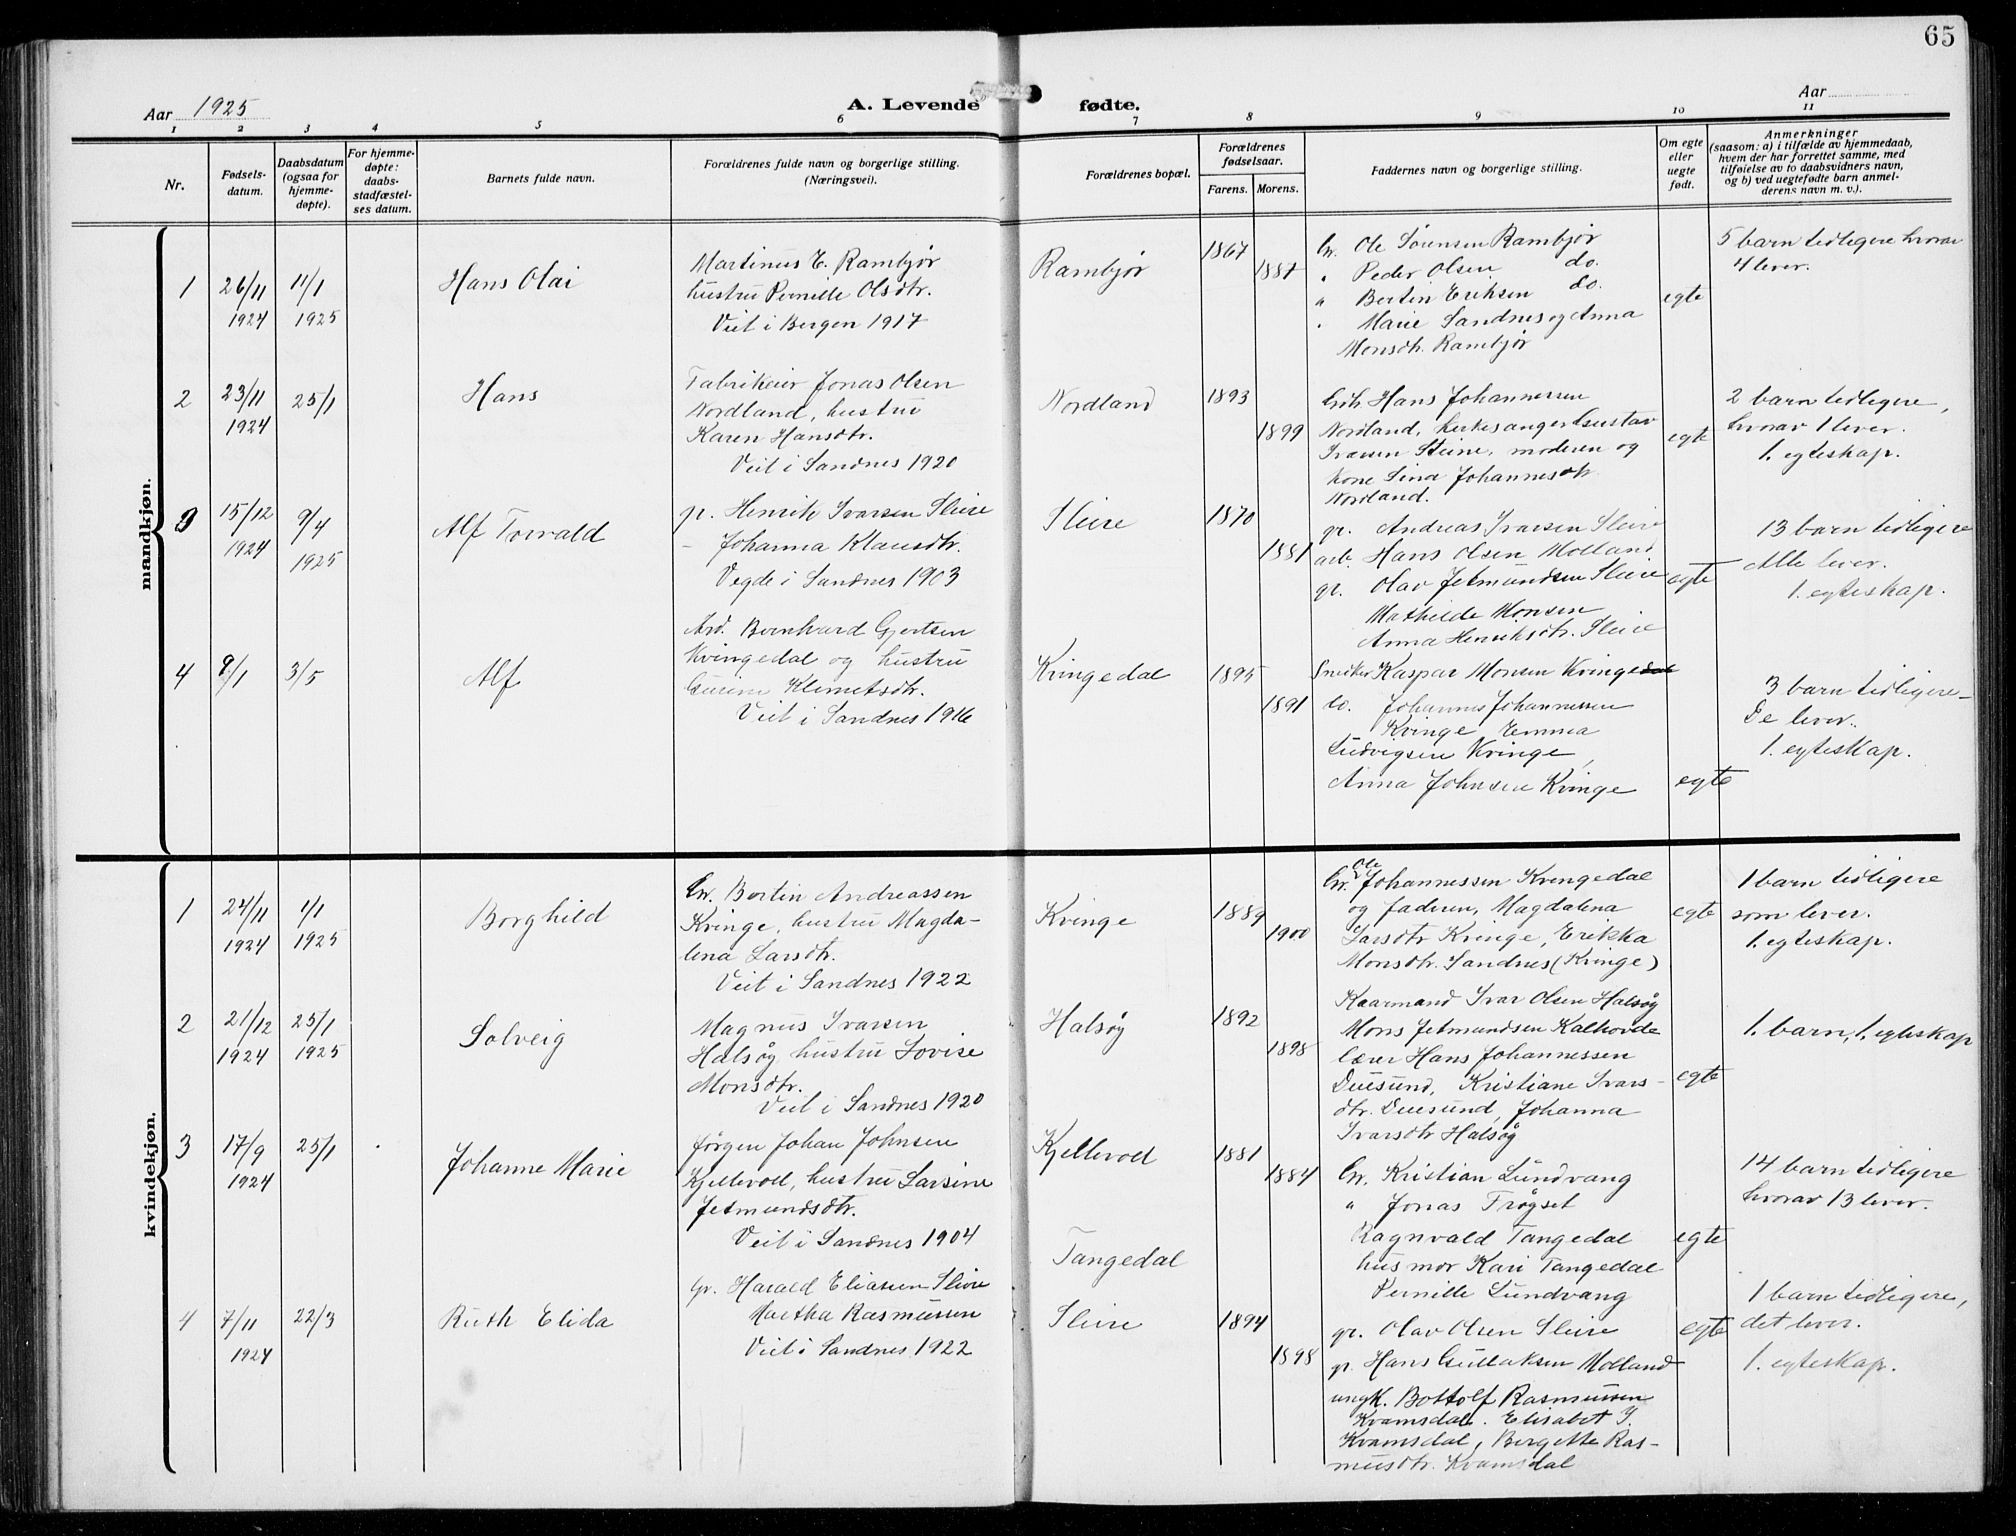 65
Aar 1925
A. Levende fødte.
Aar
1 2 3 4 5 6 7 8 9 10 11
Nr.
Fødsels-
datum.
Daabsdatum
(ogsaa for
hjemme-
døpte).
For hjemme-
døpte:
daabs-
stadfæstel-
ses datum.
Barnets fulde navn.
Forældrenes fulde navn og borgerlige stilling.
(Næringsvei).
Forældrenes bopæl.
Forældrenes
fødselsaar.
Farens. Morens.
Faddernes navn og borgerlige stilling.
Om egte
eller
uegte
født.
Anmerkninger
(saasom: a) i tilfælde av hjemmedaab,
hvem der har forrettet samme, med
tilføielse av to daabsvidners navn,
og b) ved uegtefødte barn anmel-
derens navn m. v.).
mandkjøn.
1
26/11
1924
11/1
1925
Hans Olai
Martinus E. Rambjør
hustru Pernille Olsdtr.
Viet i Bergen 1917
Rambjør
1867
1887
Gr. Ole Sørensen Rambjør
" Peder Olsen do.
" Bertin Eriksen do.
" Marie Sandnes og Anna
Monsdtr. Rambjør
egte
5 barn tidligere hvorav
4 lever.
2
23/11
1924
25/1
Hans
Fabrikeier Jonas Olsen
Nordland, hustru
Karen Hansdtr.
Viet i Sandnes 1920
Nordland
1893
1899
Hans Johannessen
Nordland, kirkesanger Gustav
Ivarsen Steine, moderen og
kone Sina Johannesdtr
Nordland.
egte
2 barn tidligere,
hvorav 1 lever.
1. egteskap.
3
15/12
1924
9/4
1925
Alf Torvald
gr. Henrik Ivarsen Sleire
- Johanna Klausdtr.
Vegde i Sandnes 1903
Sleire
1870
1881
gr. Andreas Ivarsen Sleire
arb. Hans Olsen Molland
gr. Olav Jetmundsen Sleire
Mathilde Monsen
Anna Henriksdtr. Sleire
egte
13 barn tidligere
Alle lever.
1. egteskap.
4
9/1
3/5
Alf
Arb. Bernhard Gjertsen
Kvingedal og hustru
Gurine Klemetsdtr.
Viet i Sandnes 1916
Kvingedal
1895
1891
Snekker Kaspar Monsen Kvingedal
do. Johannes Johannessen
Kvinge Emma
Ludvigsen Kvinge,
Anna Johnsen Kvinge
egte
3 barn tidligere -
De lever.
1. egteskap.
kvindekjøn.
1
24/11
1924
1/1
1925
Borghild
Gr. Bertin Andreassen
Kvinge, hustru Magda-
lena Larsdtr.
Viet i Sandnes 1922
Kvinge
1889
1900
Gr. Ole Johannessen Kvingedal
og faderen, Magdalena
Larsdtr Kvinge, Erikka
Monsdtr. Sandnes (Kvinge)
egte
1 barn tidligere
som lever.
1. egteskap.
2
21/12
1924
25/1
1925
Solveig
Magnus Ivarsen
Halsøg hustru Lovise
Monsdtr.
Viet i Sandnes 1920
Halsøg
1892
1898
Kaarmand Ivar Olsen Halsøg
Mons Jetmundsen Kalhovde
lærer Hans Johannessen
Duesund, Kristiane Ivars-
dtr. Duesund, Johanna
Ivarsdtr Halsøg
egte
1. barn, 1. egteskap
3
17/9
1924
25/1
Johanne Marie
Jørgen Johan Johnsen
Kjellevold, hustru Larsine
Jetmundsdtr.
Viet i Sandnes 1904
Kjellevold
Tangedal
1881
1884
Gr. Kristian Lundvang
" Jonas Trøgset
Ragnvald Tangedal
husmor Kari Tangedal
Pernille Lundvang
egte
14 barn tidligere
hvorav 13 lever.
4
7/11
1924
22/3
Ruth Elida
Gr. Harald Eliassen Sleire
Martha Rasmussen
Viet i Sandnes 1922
Sleire
1894
1898
gr. Olav Olsen Sleire
gr. Hans Gullaksen Molland
ungk. Bottolf Rasmussen
Kvamsdal. Elisabet J.
Kvamsdal, Bergette Ras-
musdtr. Kvamsdal
egte
1 barn tidligere,
det lever.
1. egteskap.